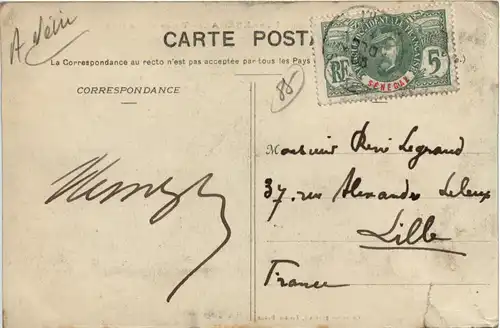 CARTE POSTA
La Correspondance au recto n'est pas acceptée par tous les Pays
CORRESPONDANCE
88
OCCIDENTALE FRANÇAISE
RF
SÉNÉGAL
5
Monsieur René Legrand
37, rue Alexandre Leleux
Lille
France